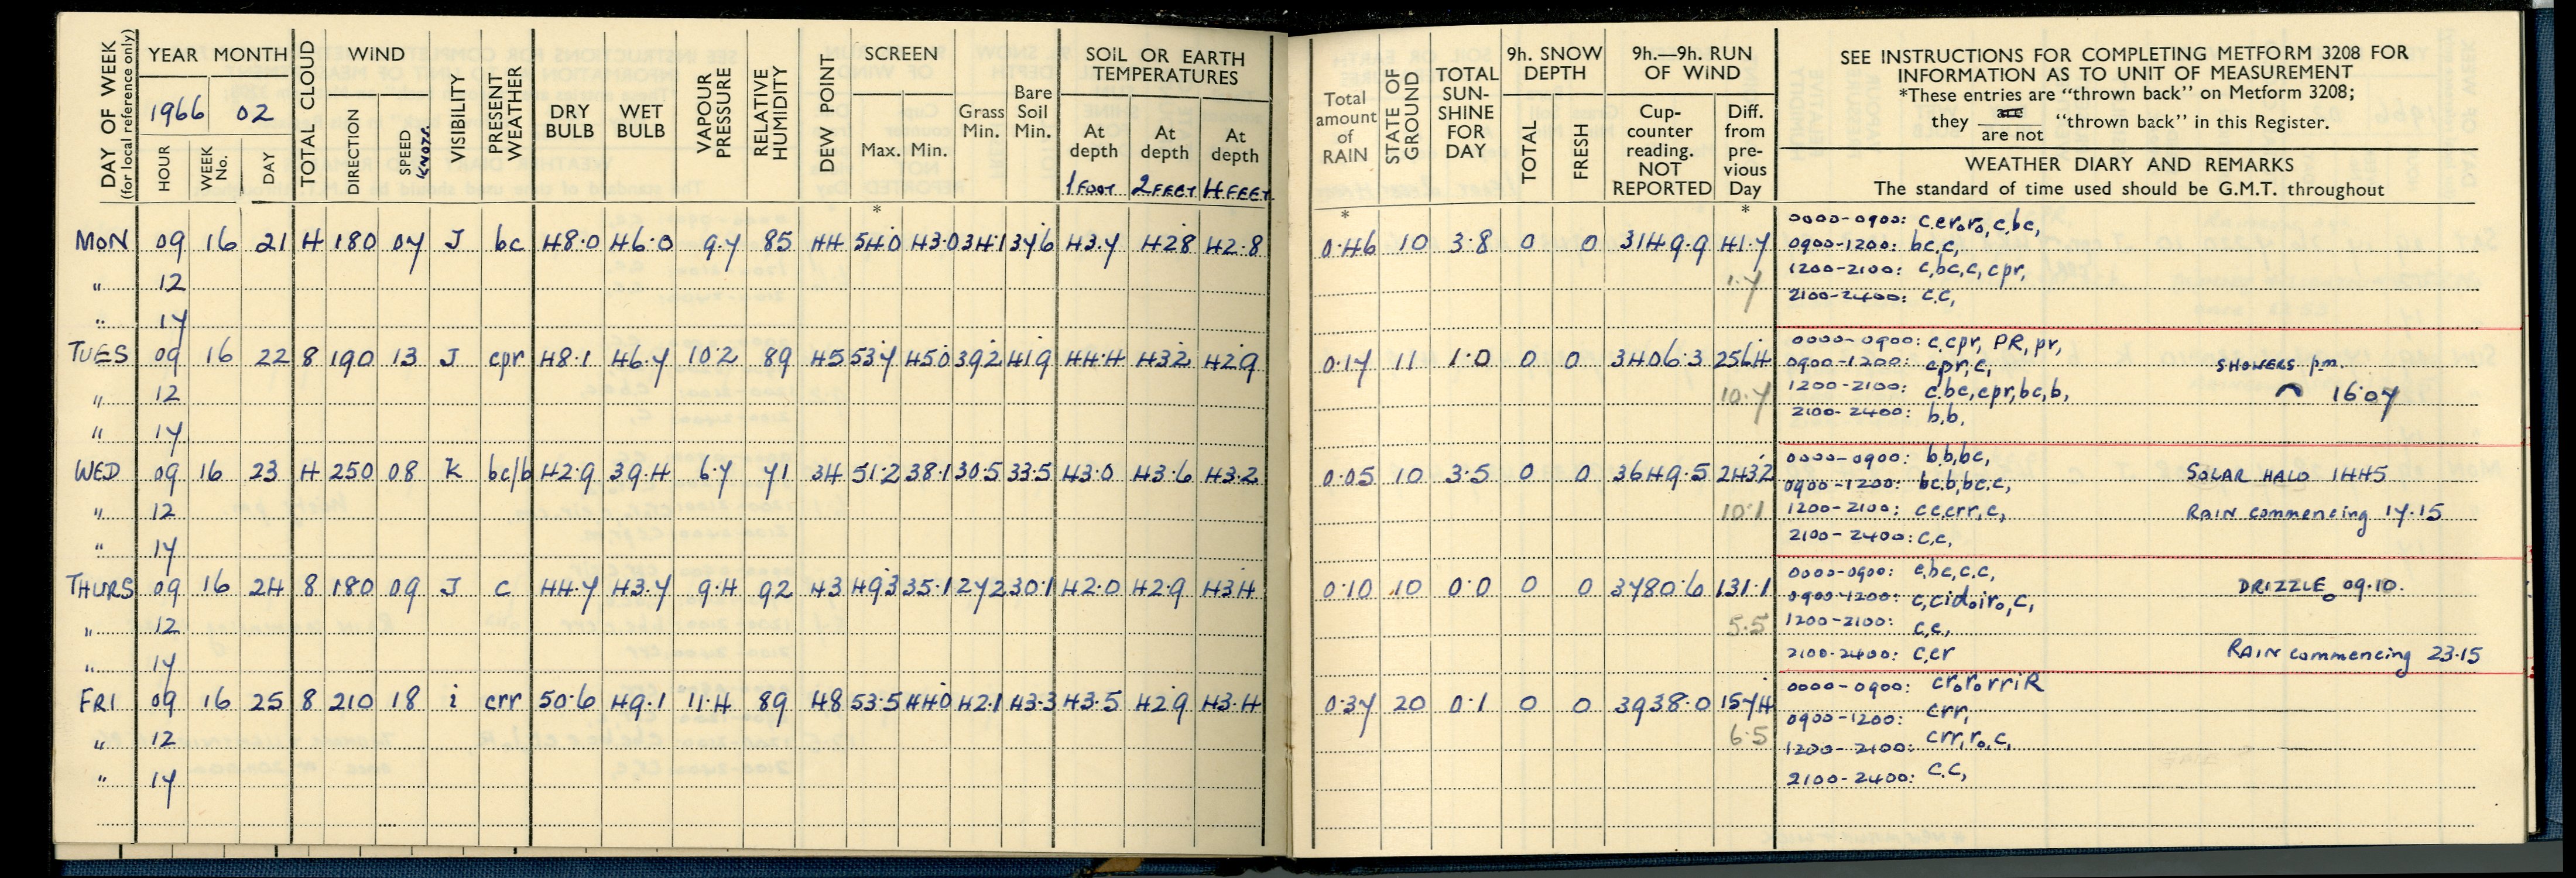 DAY OF WEEK (for local reference only)
YEAR MONTH
1966 02
HOUR WEEK No. DAY
TOTAL CLOUD
WIND
DIRECTION SPEED KNOTS
VISIBILITY
PRESENT WEATHER
DRY BULB
WET BULB
VAPOUR PRESSURE
RELATIVE HUMIDITY
DEW POINT
SCREEN
Max. Min.
Grass Min.
Bare Soil Min.
SOIL OR EARTH TEMPERATURES
At depth 1 FOOT
At depth 2 FEET
At depth 4 FEET
Total amount of RAIN
STATE OF GROUND
TOTAL SUN-SHINE FOR DAY
9h. SNOW DEPTH
TOTAL FRESH
9h.—9h. RUN OF WIND
Cup-counter reading. NOT REPORTED
Diff. from pre-vious Day
SEE INSTRUCTIONS FOR COMPLETING METFORM 3208 FOR
INFORMATION AS TO UNIT OF MEASUREMENT
*These entries are "thrown back" on Metform 3208;
they are / are not "thrown back" in this Register.
WEATHER DIARY AND REMARKS
The standard of time used should be G.M.T. throughout
* * *
MON 09 16 21 4 180 07 J bc 48.0 46.0 9.7 85 44 54.0 43.0 34.1 37.6 43.7 42.8 42.8 0.46 10 3.8 0 0 3149.9 41.7
0000-0900: c,cr₀r₀,c,bc,
0900-1200: bc,c,
1200-2100: c,bc,c,cpr,
2100-2400: c.c,
" 12 1.7
" 17
TUES 09 16 22 8 190 13 J cpr 48.1 46.7 10.2 89 45 53.7 45.0 39.2 41.9 44.4 43.2 42.9 0.17 11 1.0 0 0 3406.3 256.4
0000-0900: c.cpr, PR, pr,
0900-1200: cpr,c,
1200-2100: c.bc,cpr,bc,b,
2100-2400: b,b,
SHOWERS p.m.
⌒ 16.07
" 12 10.7
" 17
WED 09 16 23 4 250 08 K bc/b 42.9 39.4 6.7 71 34 51.2 38.1 30.5 33.5 43.0 43.6 43.2 0.05 10 3.5 0 0 3649.5 243.2
0000-0900: b.b,bc,
0900-1200: bc.b,bc.c,
1200-2100: c c,crr,c,
2100-2400: c,c,
SOLAR HALO 1445
RAIN commencing 17.15
" 12 10.1
" 17
THURS 09 16 24 8 180 09 J c 44.7 43.7 9.4 92 43 49.3 35.1 27.2 30.1 42.0 42.9 43.4 0.10 10 0.0 0 0 3780.6 131.1
0000-0900: c,bc,c.c,
0900-1200: c,cid₀ir₀,c,
1200-2100: c,c,
2100-2400: c,cr
DRIZZLE₀ 09.10.
RAIN commencing 23.15
" 12 5.5
" 17
FRI 09 16 25 8 210 18 i crr 50.6 49.1 11.4 89 48 53.5 44.0 42.1 43.3 43.5 42.9 43.4 0.37 20 0.1 0 0 3938.0 157.4
0000-0900: cr₀r₀rriR
0900-1200: crr,
1200-2100: crr,r₀,c,
2100-2400: c.c,
" 12 6.5
" 17